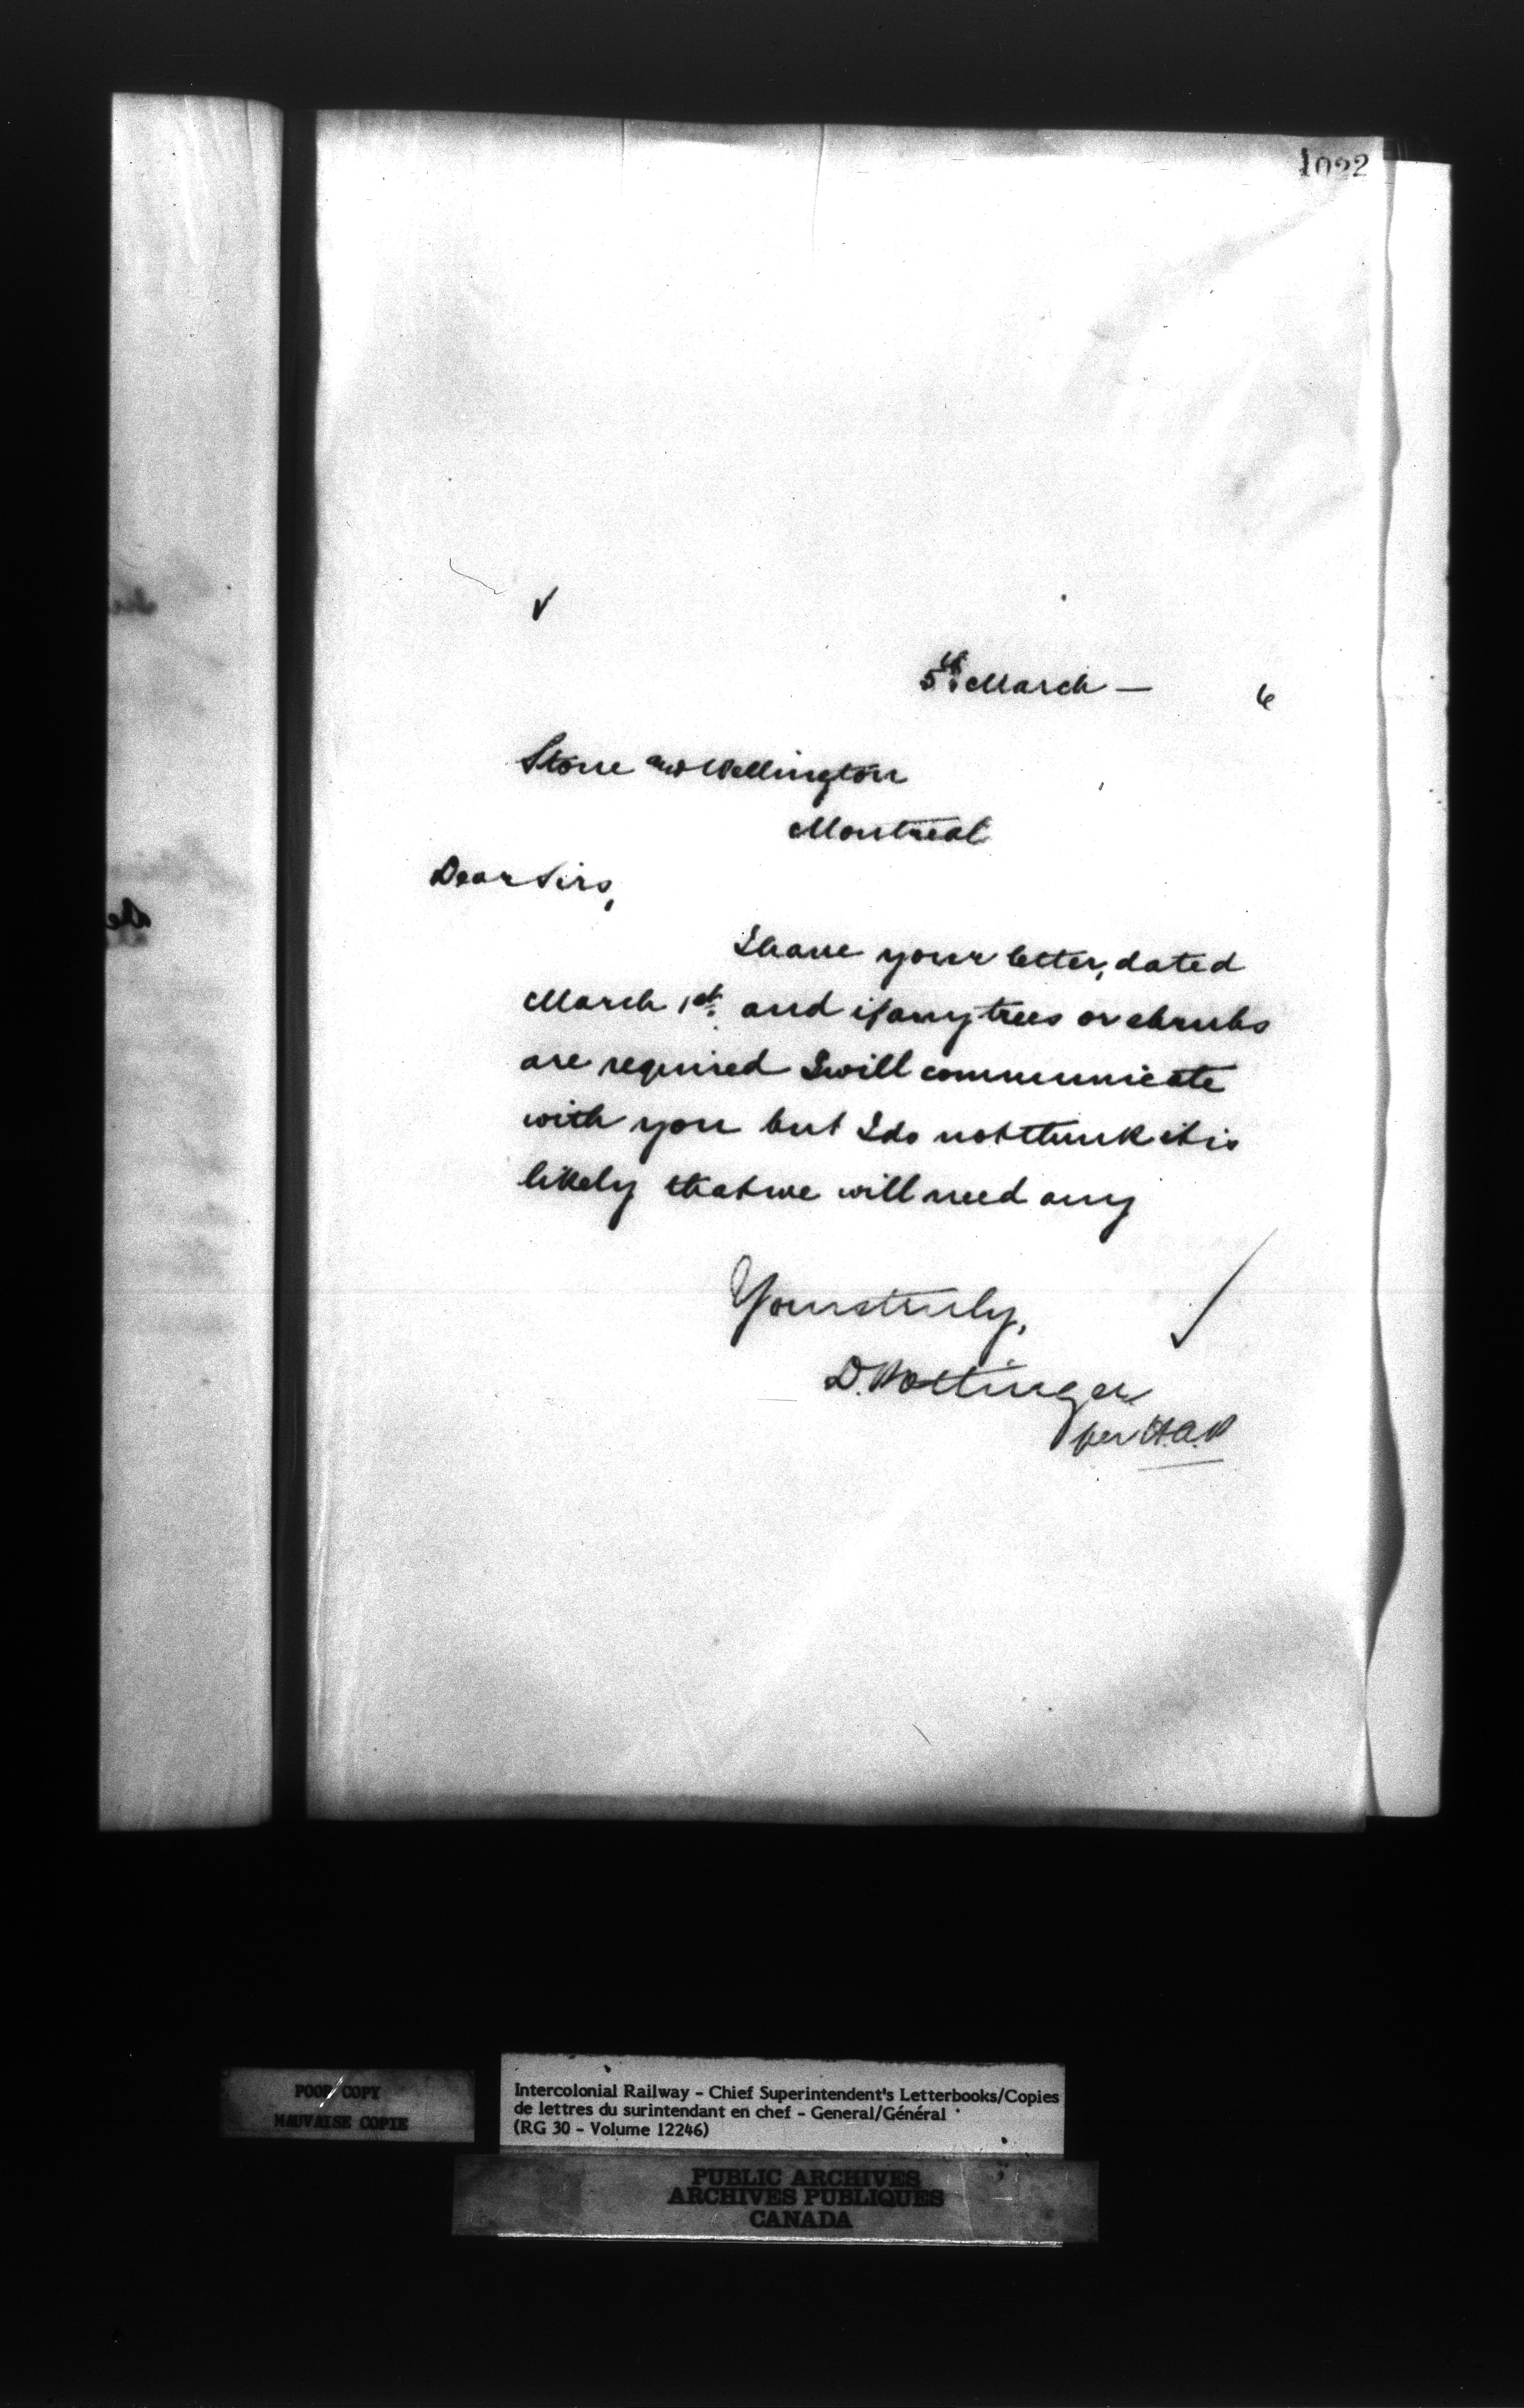 1022
5th March — 6
Stone and Wellington
Montreal
Dear Sirs,
I have your letter, dated
March 1st. and if any trees or shrubs
are required I will communicate
with you but I do not think it is
likely that we will need any
Yours truly,
D. Pottinger
per H.A.P
POOR COPY
MAUVAISE COPIE
Intercolonial Railway - Chief Superintendent's Letterbooks/Copies
de lettres du surintendant en chef - General/Général
(RG 30 - Volume 12246)
PUBLIC ARCHIVES
ARCHIVES PUBLIQUES
CANADA